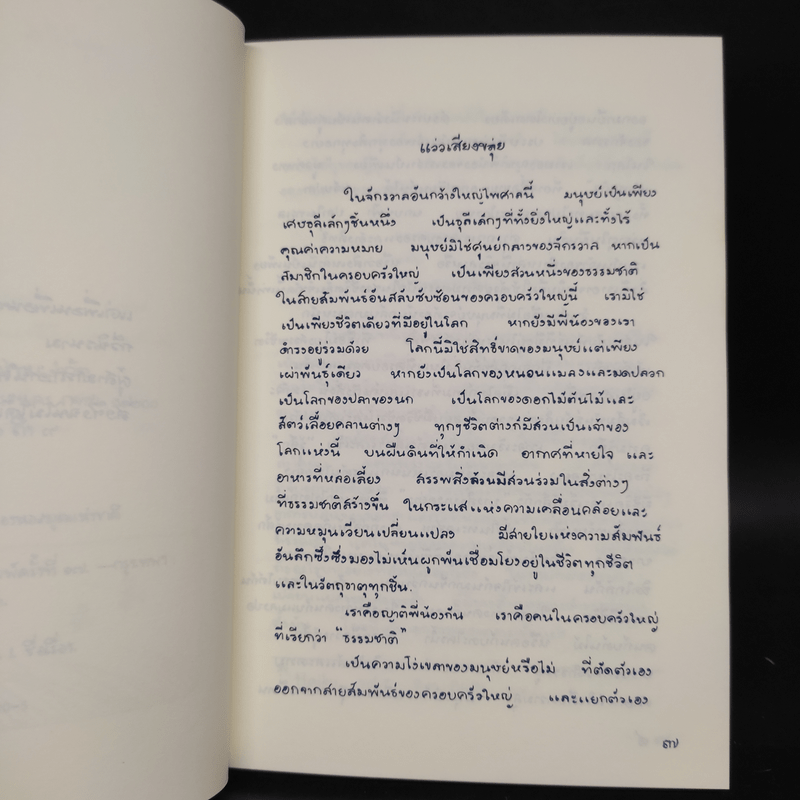 แว่วเสียงขลุ่ย
ในจักรวาลอันกว้างใหญ่ไพศาลนี้ มนุษย์เป็นเพียง
เศษธุลีเล็กๆชิ้นหนึ่ง เป็นธุลีเล็กๆที่ทั้งยิ่งใหญ่และทั้งไร้
คุณค่าความหมาย มนุษย์มิใช่ศูนย์กลางของจักรวาล หากเป็น
สมาชิกในครอบครัวใหญ่ เป็นเพียงส่วนหนึ่งของธรรมชาติ
ในสายสัมพันธ์อันสลับซับซ้อนของครอบครัวใหญ่นี้ เรามิใช่
เป็นเพียงชีวิตเดียวที่มีอยู่ในโลก หากยังมีพี่น้องของเรา
ดำรงอยู่ร่วมด้วย โลกนี้มิใช่สิทธิ์ขาดของมนุษย์แต่เพียง
เผ่าพันธุ์เดียว หากยังเป็นโลกของหนอนแมลงและมดปลวก
เป็นโลกของปลาของนก เป็นโลกของดอกไม้ต้นไม้และ
สัตว์เลื้อยคลานต่างๆ ทุกๆชีวิตต่างก็มีส่วนเป็นเจ้าของ
โลกแห่งนี้ บนผืนดินที่ให้กำเนิด อากาศที่หายใจ และ
อาหารที่หล่อเลี้ยง สรรพสิ่งล้วนมีส่วนร่วมในสิ่งต่างๆ
ที่ธรรมชาติสร้างขึ้น ในกระแสแห่งความเคลื่อนคล้อยและ
ความหมุนเวียนเปลี่ยนแปลง มีสายใยแห่งความสัมพันธ์
อันลึกซึ้งซึ่งมองไม่เห็นผูกพันเชื่อมโยงอยู่ในชีวิตทุกชีวิต
และในวัตถุธาตุทุกชิ้น.
เราคือญาติพี่น้องกัน เราคือคนในครอบครัวใหญ่
ที่เรียกว่า "ธรรมชาติ"
เป็นความโง่เขลาของมนุษย์หรือไม่ ที่ตัดตัวเอง
ออกจากสายสัมพันธ์ของครอบครัวใหญ่ และแยกตัวเอง
๓๗